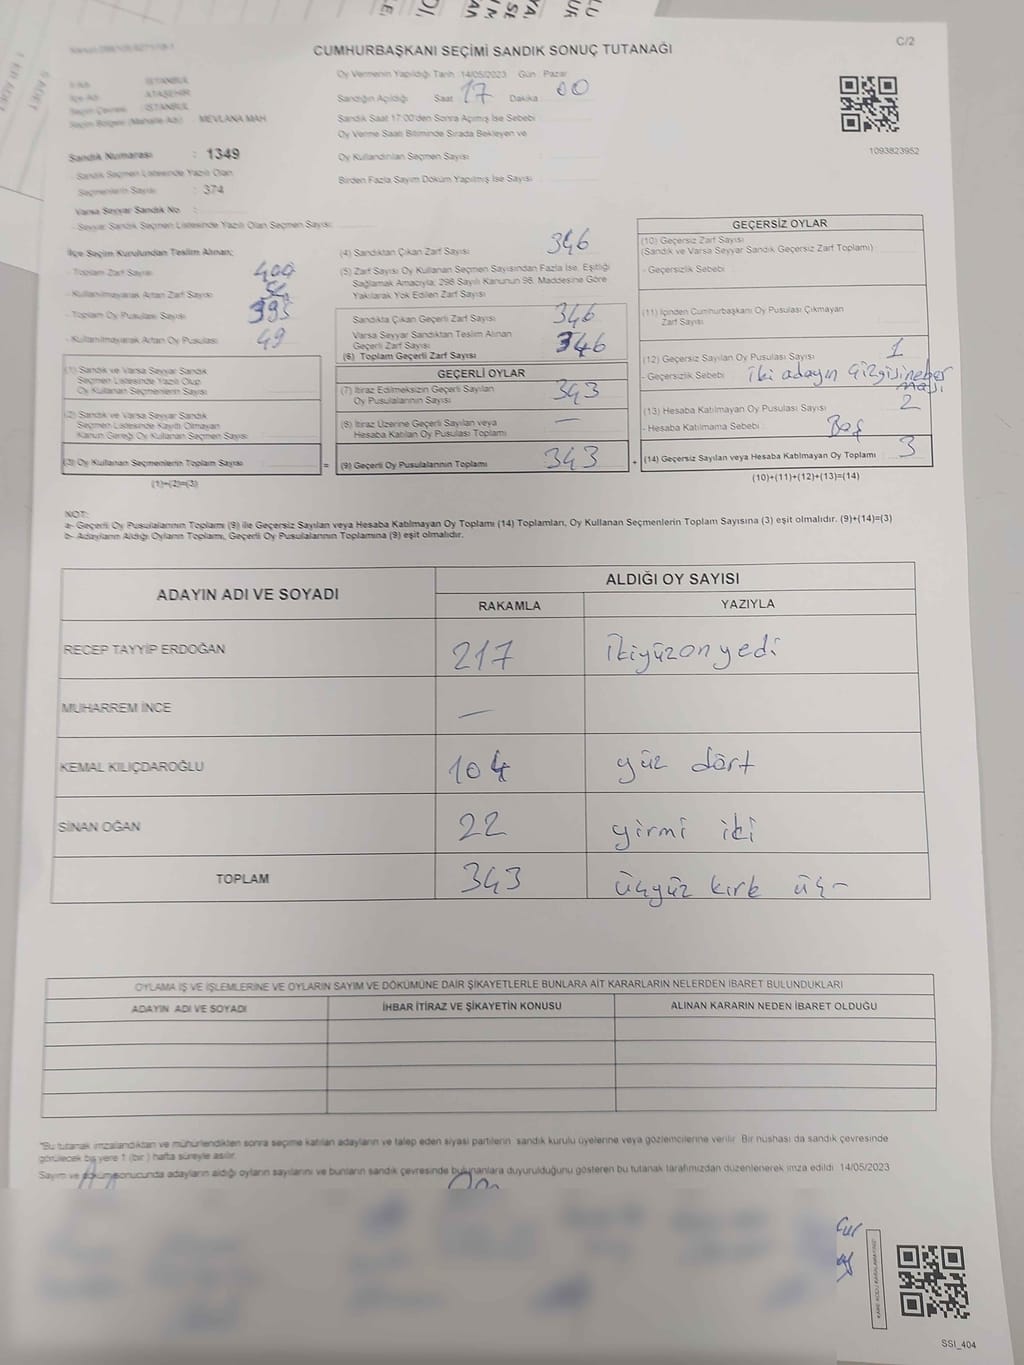 CUMHURBAŞKANI SEÇİMİ SANDIK SONUÇ TUTANAĞI
C/2
İlçe Adı : ATAŞEHİR
Seçim Çevresi : İSTANBUL
Seçim Bölgesi (Mahalle Adı) : MEVLANA MAH
Sandık Numarası : 1349
Sandık Seçmen Listesinde Yazılı Olan
Seçmenlerin Sayısı : 374
Varsa Seyyar Sandık No :
- Seyyar Sandık Seçmen Listesinde Yazılı Olan Seçmen Sayısı:
Oy Vermenin Yapıldığı Tarih :14/05/2023 Gün : Pazar
Sandığın Açıldığı Saat 17 Dakika 00
Sandık Saat 17:00'den Sonra Açımış İse Sebebi :
Oy Verme Saati Bitiminde Sırada Bekleyen ve
Oy Kullandırılan Seçmen Sayısı :
Birden Fazla Sayım Döküm Yapılmış İse Sayısı :
1093823952
İlçe Seçim Kurulundan Teslim Alınan;
- Toplam Zarf Sayısı : 400
- Kullanılmayarak Artan Zarf Sayısı : 54
- Toplam Oy Pusulası Sayısı : 395
- Kullanılmayarak Artan Oy Pusulası : 49
(1) Sandık ve Varsa Seyyar Sandık
Seçmen Listesinde Yazılı Olup
Oy Kullanan Seçmenlerin Sayısı :
(2) Sandık ve Varsa Seyyar Sandık
Seçmen Listesinde Kayıtlı Olmayan
Kanun Gereği Oy Kullanan Seçmen Sayısı :
(3) Oy Kullanan Seçmenlerin Toplam Sayısı :
(1)+(2)=(3)
(4) Sandıktan Çıkan Zarf Sayısı : 346
(5) Zarf Sayısı Oy Kullanan Seçmen Sayısından Fazla İse, Eşitliği
Sağlamak Amacıyla; 298 Sayılı Kanunun 98. Maddesine Göre
Yakılarak Yok Edilen Zarf Sayısı :
Sandıkta Çıkan Geçerli Zarf Sayısı : 346
Varsa Seyyar Sandıktan Teslim Alınan
Geçerli Zarf Sayısı :
(6) Toplam Geçerli Zarf Sayısı : 346
GEÇERLİ OYLAR
(7) İtiraz Edilmeksizin Geçerli Sayılan
Oy Pusulalarının Sayısı : 343
(8) İtiraz Üzerine Geçerli Sayılan veya
Hesaba Katılan Oy Pusulası Toplamı : —
= (9) Geçerli Oy Pusulalarının Toplamı : 343
GEÇERSİZ OYLAR
(10) Geçersiz Zarf Sayısı
(Sandık ve Varsa Seyyar Sandık Geçersiz Zarf Toplamı) :
- Geçersizlik Sebebi :
(11) İçinden Cumhurbaşkanı Oy Pusulası Çıkmayan
Zarf Sayısı :
(12) Geçersiz Sayılan Oy Pusulası Sayısı : 1
- Geçersizlik Sebebi : iki adayın çizgisine
(13) Hesaba Katılmayan Oy Pusulası Sayısı : 2
- Hesaba Katılmama Sebebi : Boş
+ (14) Geçersiz Sayılan veya Hesaba Katılmayan Oy Toplamı : 3
(10)+(11)+(12)+(13)=(14)
NOT:
a- Geçerli Oy Pusulalarının Toplamı (9) ile Geçersiz Sayılan veya Hesaba Katılmayan Oy Toplamı (14) Toplamları, Oy Kullanan Seçmenlerin Toplam Sayısına (3) eşit olmalıdır. (9)+(14)=(3)
b- Adayların Aldığı Oyların Toplamı, Geçerli Oy Pusulalarının Toplamına (9) eşit olmalıdır.
ADAYIN ADI VE SOYADI
ALDIĞI OY SAYISI
RAKAMLA YAZIYLA
RECEP TAYYİP ERDOĞAN 217 ikiyüzonyedi
MUHARREM İNCE —
KEMAL KILIÇDAROĞLU 104 yüz dört
SİNAN OĞAN 22 yirmi iki
TOPLAM 343 üçyüz kırk üç-
OYLAMA İŞ VE İŞLEMLERİNE VE OYLARIN SAYIM VE DÖKÜMÜNE DAİR ŞİKAYETLERLE BUNLARA AİT KARARLARIN NELERDEN İBARET BULUNDUKLARI
ADAYIN ADI VE SOYADI İHBAR İTİRAZ VE ŞİKAYETİN KONUSU ALINAN KARARIN NEDEN İBARET OLDUĞU
*Bu tutanak imzalandıktan ve mühürlendikten sonra seçime katılan adayların ve talep eden siyasi partilerin sandık kurulu üyelerine veya gözlemcilerine verilir. Bir nüshası da sandık çevresinde
görülecek bir yere 1 (bir) hafta süreyle asılır.
Sayım ve döküm sonucunda adayların aldığı oyların sayılarını ve bunların sandık çevresinde bulunanlara duyurulduğunu gösteren bu tutanak tarafımızdan düzenlenerek imza edildi. 14/05/2023
SSI_404